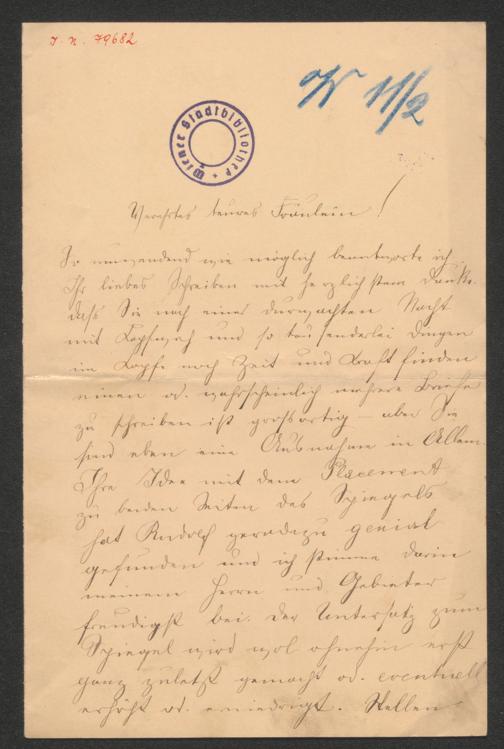 J. N. 79682
W 11/2
Wiener Stadtbibliothek
Verehrtes teures Fräulein!
So umwendend wie möglich beantworte ich
Ihr liebes Schreiben mit herzlichstem Danke.
dass Sie nach einer durwachten Nacht
mit Kopfweh und so tausenderlei Dingen
im Kopfe noch Zeit und Kraft finden
einen od. wahrscheinlich mehrere Briefe
zu schreiben ist großartig – aber Sie
sind eben eine Ausnahme in Allem.
Ihre Idee mit dem Placement
zu beiden Seiten des Spiegels
hat Rudolf geradezu genial
gefunden und ich stimme darin
meinem Herrn und Gebieter
freudigst bei. Der Untersatz zum
Spiegel wird wol ohnehin erst
ganz zuletzt gemacht od. eventuell
erhöht od. erniedrigt. Stellen